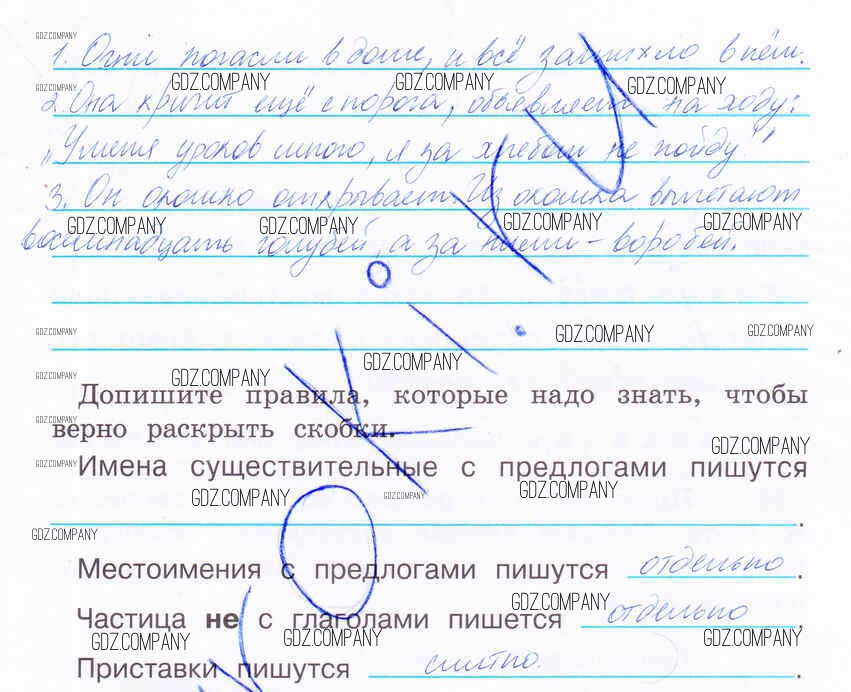 GDZ.COMPANY
1. Огни погасли в доме, и всё затихло в нём.
GDZ.COMPANY GDZ.COMPANY GDZ.COMPANY GDZ.COMPANY
2. Она кричит ещё с порога, объявляет на ходу:
„У меня уроков много, я за хлебом не пойду."
3. Он окошко открывает. Из окошка вылетают
GDZ.COMPANY GDZ.COMPANY GDZ.COMPANY GDZ.COMPANY
восемнадцать голубей, а за ними – воробей.
GDZ.COMPANY GDZ.COMPANY GDZ.COMPANY
GDZ.COMPANY
GDZ.COMPANY GDZ.COMPANY
Допишите правила, которые надо знать, чтобы
GDZ.COMPANY
верно раскрыть скобки.
GDZ.COMPANY
Имена существительные с предлогами пишутся
GDZ.COMPANY
GDZ.COMPANY GDZ.COMPANY GDZ.COMPANY
.
GDZ.COMPANY
Местоимения с предлогами пишутся отдельно.
GDZ.COMPANY
Частица не с глаголами пишется отдельно.
GDZ.COMPANY GDZ.COMPANY GDZ.COMPANY
Приставки пишутся слитно.